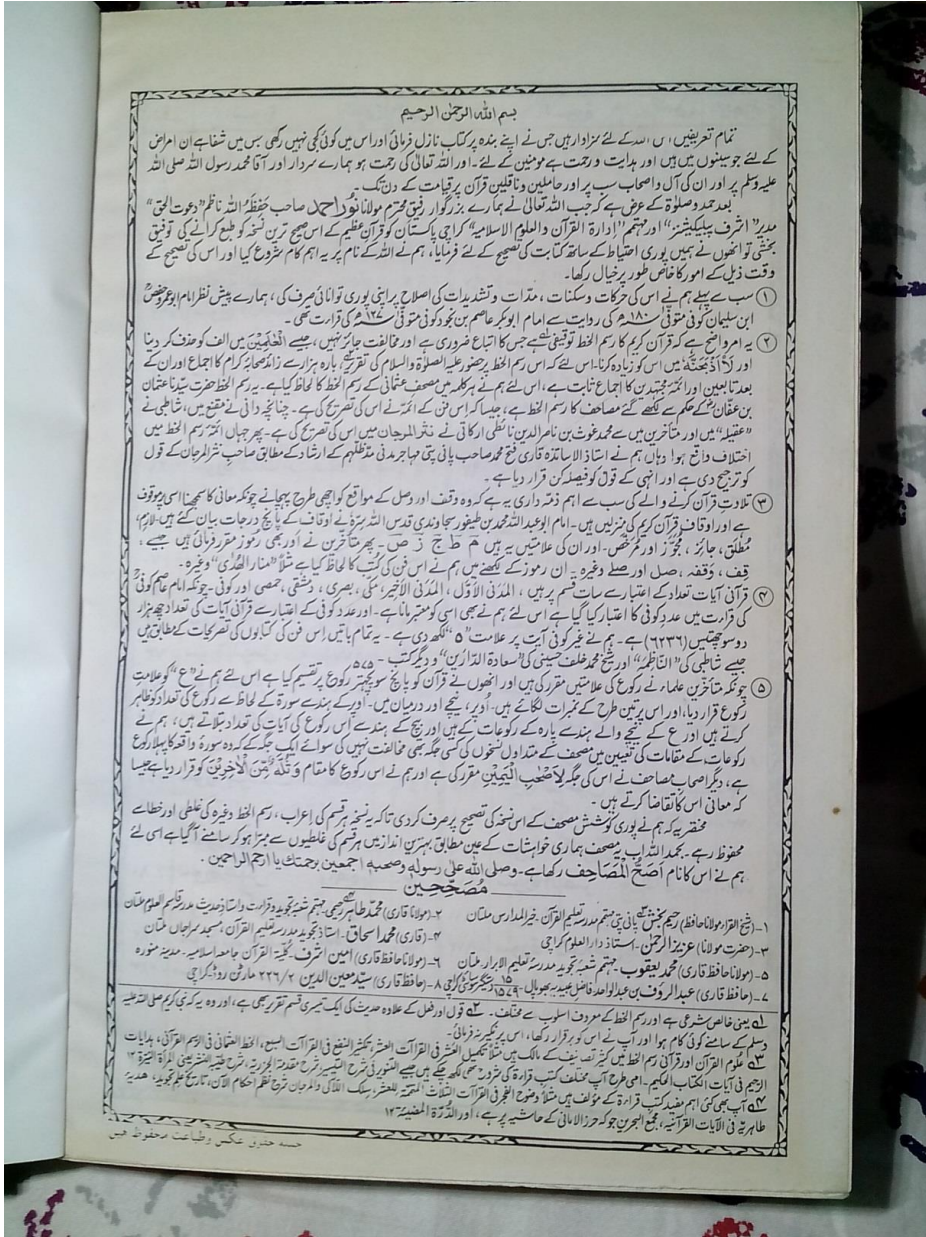 بسم الله الرحمن الرحيم
تمام تعریفیں اس اللہ کے لئے سزاوار ہیں جس نے اپنے بندہ پر کتاب نازل فرمائی اور اس میں کوئی کجی نہیں رکھی جس میں شفا ہے ان امراض
کے لئے جو سینوں میں ہیں اور ہدایت و رحمت ہے مومنین کے لئے۔ اور اللہ تعالیٰ کی رحمت ہو ہمارے سردار اور آقا محمد رسول اللہ صلی اللہ
علیہ وسلم پر اور ان کی آل و اصحاب سب پر اور حاملین و ناقلین قرآن پر قیامت کے دن تک۔
بعد حمد و صلوٰۃ کے عرض ہے کہ جب اللہ تعالیٰ نے ہمارے بزرگوار رفیق محترم مولانا نور احمد صاحب حفظہ اللہ ناظم ”دعوت الحق“
مدیر ”اشرف پبلیکیشنز“ اور مہتمم ”إدارة القرآن والعلوم الاسلامیہ“ کراچی پاکستان کو قرآن عظیم کے اس صحیح ترین نسخہ کو طبع کرانے کی توفیق
بخشی تو انھوں نے ہمیں پوری احتیاط کے ساتھ کتابت کی تصحیح کے لئے فرمایا، ہم نے اللہ کے نام پر یہ اہم کام شروع کیا اور اس کی تصحیح کے
وقت ذیل کے امور کا خاص طور پر خیال رکھا۔
① سب سے پہلے ہم نے اس کی حرکات و سکنات، مدّات و تشدیدات کی اصلاح پر اپنی پوری توانائی صرف کی، ہمارے پیش نظر امام ابو عمرو حفص
ابن سلیمان کوفی متوفی ۱۸۰ھ کی روایت سے امام ابوبکر عاصم بن نجود کوفی متوفی ۱۲۷ھ کی قراءت تھی۔
② یہ امر واضح ہے کہ قرآن کریم کا رسم الخط توقیفی ہے جس کا اتباع ضروری ہے اور مخالفت جائز نہیں، جیسے الْعٰلَمِيْنَ میں الف کو حذف کر دینا
اور لَاَاذْبَحَنَّهٗ میں اس کو زیادہ کرنا۔ اس لئے کہ اس رسم الخط پر حضور علیہ الصلوٰۃ والسلام کی تقریر، بارہ ہزار سے زائد صحابۂ کرام کا اجماع اور ان کے
بعد تابعین اور ائمۂ مجتہدین کا اجماع ثابت ہے، اس لئے ہم نے ہر کلمہ میں مصحف عثمانی کے رسم الخط کا لحاظ کیا ہے۔ یہ رسم الخط حضرت سیدنا عثمان
بن عفّان کے حکم سے لکھے گئے مصاحف کا رسم الخط ہے، جیسا کہ اس فن کے ائمہ نے اس کی تصریح کی ہے۔ چنانچہ دانی نے مقنع میں، شاطبی نے
”عقیلہ“ میں اور متأخرین میں سے محمد غوث بن ناصر الدین نائطی ارکاتی نے نثر المرجان میں اس کی تصریح کی ہے۔ پھر جہاں ائمۂ رسم الخط میں
اختلاف واقع ہوا وہاں ہم نے استاذ الاساتذہ قاری فتح محمد صاحب پانی پتی مہاجر مدنی مدظلہم کے ارشاد کے مطابق صاحب نثر المرجان کے قول
کو ترجیح دی ہے اور انہی کے قول کو فیصلہ کن قرار دیا ہے۔
③ تلاوتِ قرآن کرنے والے کی سب سے اہم ذمہ داری یہ ہے کہ وہ وقف اور وصل کے مواقع کو اچھی طرح پہچانے چونکہ معانی کا سمجھنا اسی پر موقوف
ہے اور اوقاف قرآن کریم کی منزلیں ہیں۔ امام ابو عبد اللہ محمد بن طیفور سجاوندی قدس اللہ سرہ نے اوقاف کے پانچ درجات بیان کئے ہیں۔ لازم،
مُطْلَق، جائز، مُجَوَّز اور مُرَخَّص۔ اور ان کی علامتیں یہ ہیں م ط ج ز ص۔ پھر متأخرین نے اور بھی رموز مقرر فرمائی ہیں جیسے :
قِف، وَقفہ، صل اور صلے وغیرہ۔ ان رموز کے لکھنے میں ہم نے اس فن کی کُتب کا لحاظ کیا ہے مثلاً ”منار الهُدٰى“ وغیرہ۔
④ قرآنی آیات تعداد کے اعتبار سے سات قسم پر ہیں، المدنی الاوّل، المدنی الاخیر، مکّی، بصری، دمشقی، حمصی اور کوفی۔ چونکہ امام عاصم کوفی
کی قراءت میں عدد کوفی کا اعتبار کیا گیا ہے اس لئے ہم نے بھی اسی کو معتبر مانا ہے۔ اور عدد کوفی کے اعتبار سے قرآنی آیات کی تعداد چھ ہزار
دو سو چھتیس (۶۲۳۶) ہے۔ ہم نے غیر کوفی آیت پر علامت ”۵“ لکھ دی ہے۔ یہ تمام باتیں اس فن کی کتابوں کی تصریحات کے مطابق ہیں
جیسے شاطبی کی ”النّاظمہ“ اور شیخ محمد خلف حسینی کی ”سعادة الدّارین“ و دیگر کتب۔
⑤ چونکہ متأخرین علماء نے رکوع کی علامتیں مقرر کی ہیں اور انھوں نے قرآن کو پانچ سو پچھتر ۵۷۵ رکوع پر تقسیم کیا ہے اس لئے ہم نے ”ع“ کو علامتِ
رکوع قرار دیا، اور اس پر تین طرح کے نمبرات لگائے ہیں۔ اوپر، نیچے اور درمیان میں۔ اوپر کے ہندسے سورۃ کے لحاظ سے رکوع کی تعداد کو ظاہر
کرتے ہیں اور ع کے نیچے والے ہندسے پارہ کے رکوعات کے ہیں اور بیچ کے ہندسے اس رکوع کی آیات کی تعداد بتلاتے ہیں، ہم نے
رکوعات کے مقامات کی تعیین میں مصحف کے متداول نسخوں کی کسی جگہ بھی مخالفت نہیں کی سوائے ایک جگہ کے کہ وہ سورۂ واقعہ کا پہلا رکوع
ہے، دیگر اصحاب مصاحف نے اس کی جگہ لِاَصْحٰبِ الْيَمِيْنِ مقرر کی ہے اور ہم نے اس رکوع کا مقام وَثُلَّةٌ مِّنَ الْاٰخِرِيْنَ کو قرار دیا ہے جیسا
کہ معانی اس کا تقاضا کرتے ہیں۔
مختصر یہ کہ ہم نے پوری کوشش مصحف کے اس نسخہ کی تصحیح پر صرف کر دی تاکہ یہ نسخہ ہر قسم کی إعراب، رسم الخط وغیرہ کی غلطی اور خطا سے
محفوظ رہے۔ بحمد اللہ اب یہ مصحف ہماری خواہشات کے عین مطابق بہترین انداز میں ہر قسم کی غلطیوں سے مبرّا ہو کر سامنے آ گیا ہے اسی لئے
ہم نے اس کا نام اَصَحُّ الْمَصَاحِف رکھا ہے۔ وصلى الله على رسوله وصحبه اجمعين برحمتك يا ارحم الراحمين۔
مُصَحِّحِین
۱۔ (شیخ القراء مولانا حافظ) رحیم بخش پانی پتی مہتمم مدرسہ تعلیم القرآن۔ خیر المدارس ملتان ۲۔ (مولانا قاری) محمد طاہر رحیمی۔ مہتمم شعبۂ تجوید و قراءت و استاذ حدیث مدرسہ قاسم العلوم ملتان
۳۔ (حضرت مولانا) عزیز الرحمٰن۔ استاذ دار العلوم کراچی ۴۔ (قاری) محمد اسحاق۔ استاذ تجوید مدرسہ تعلیم القرآن، مسجد سراجاں ملتان
۵۔ (مولانا حافظ قاری) محمد یعقوب۔ مہتمم شعبۂ تجوید مدرسۂ تعلیم الابرار۔ ملتان ۶۔ (مولانا حافظ قاری) امین اشرف۔ کلیة القرآن جامعہ اسلامیہ۔ مدینہ منورہ
۷۔ (حافظ قاری) عبد الرؤف بن عبد الواحد فاضل عبیدیہ بھوپال۔ ۱۵۷۹/۱۵ دستگیر سوسائٹی کراچی ۸۔ (حافظ قاری) سیّد معین الدین ۲۲۶/۲ مارٹن روڈ کراچی
۱؎ یعنی خالص شرعی ہے اور رسم الخط کے معروف اسلوب سے مختلف۔ ۲؎ قول اور فعل کے علاوہ حدیث کی ایک تیسری قسم تقریر بھی ہے، اور وہ یہ کہ نبی کریم صلی اللہ علیہ
وسلم کے سامنے کوئی کام ہوا اور آپ نے اس کو برقرار رکھا، اس پر نکیر نہ فرمائی۔
۳؎ علوم القرآن اور قرآنی رسم الخط میں کثیر تصنیف کے مالک ہیں مثلاً تکمیل العُشر فی القراآت العشر، تکثیر النفع فی القراآت السبع، الخط العثمانی فی الرسم القرآنی، ہدایات
الرحیم فی آیات الکتاب الحکیم۔ اسی طرح آپ مختلف کتب قراءة کی شروح بھی لکھ چکے ہیں جیسے التنویر فی شرح التیسیر، شرح مقدمۃ الجزریہ، شرح طیبۃ النشر یعنی المرأة النیّرة ۱۲
۴؎ آپ بھی کئی اہم مفید کتب قراءة کے مؤلف ہیں مثلاً وضوح الفجر فی القراآت الثلاث المتممة للعشر، سلک اللآلی والمرجان شرح نظم احکام الآن، تاریخ علم تجوید، ھدیہ
طاہریہ فی الآیات القرآنیہ، مجمع البحرین جو کہ حرز الامانی کے حاشیہ پر ہے، اور الدُّرّة المضیئة ۱۲
جملہ حقوق عکس و طباعت محفوظ ہیں